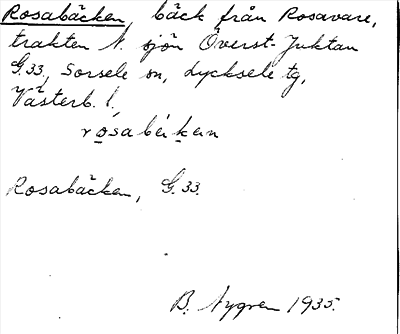 Rosabäcken, bäck från Rosavare,
trakten N. sjön Överst-Juktan
G.33., Sorsele sn, Lycksele tg,
Västerb. l.
rosabèkən
Rosabäcken, G.33.
B. Nygren 1935.